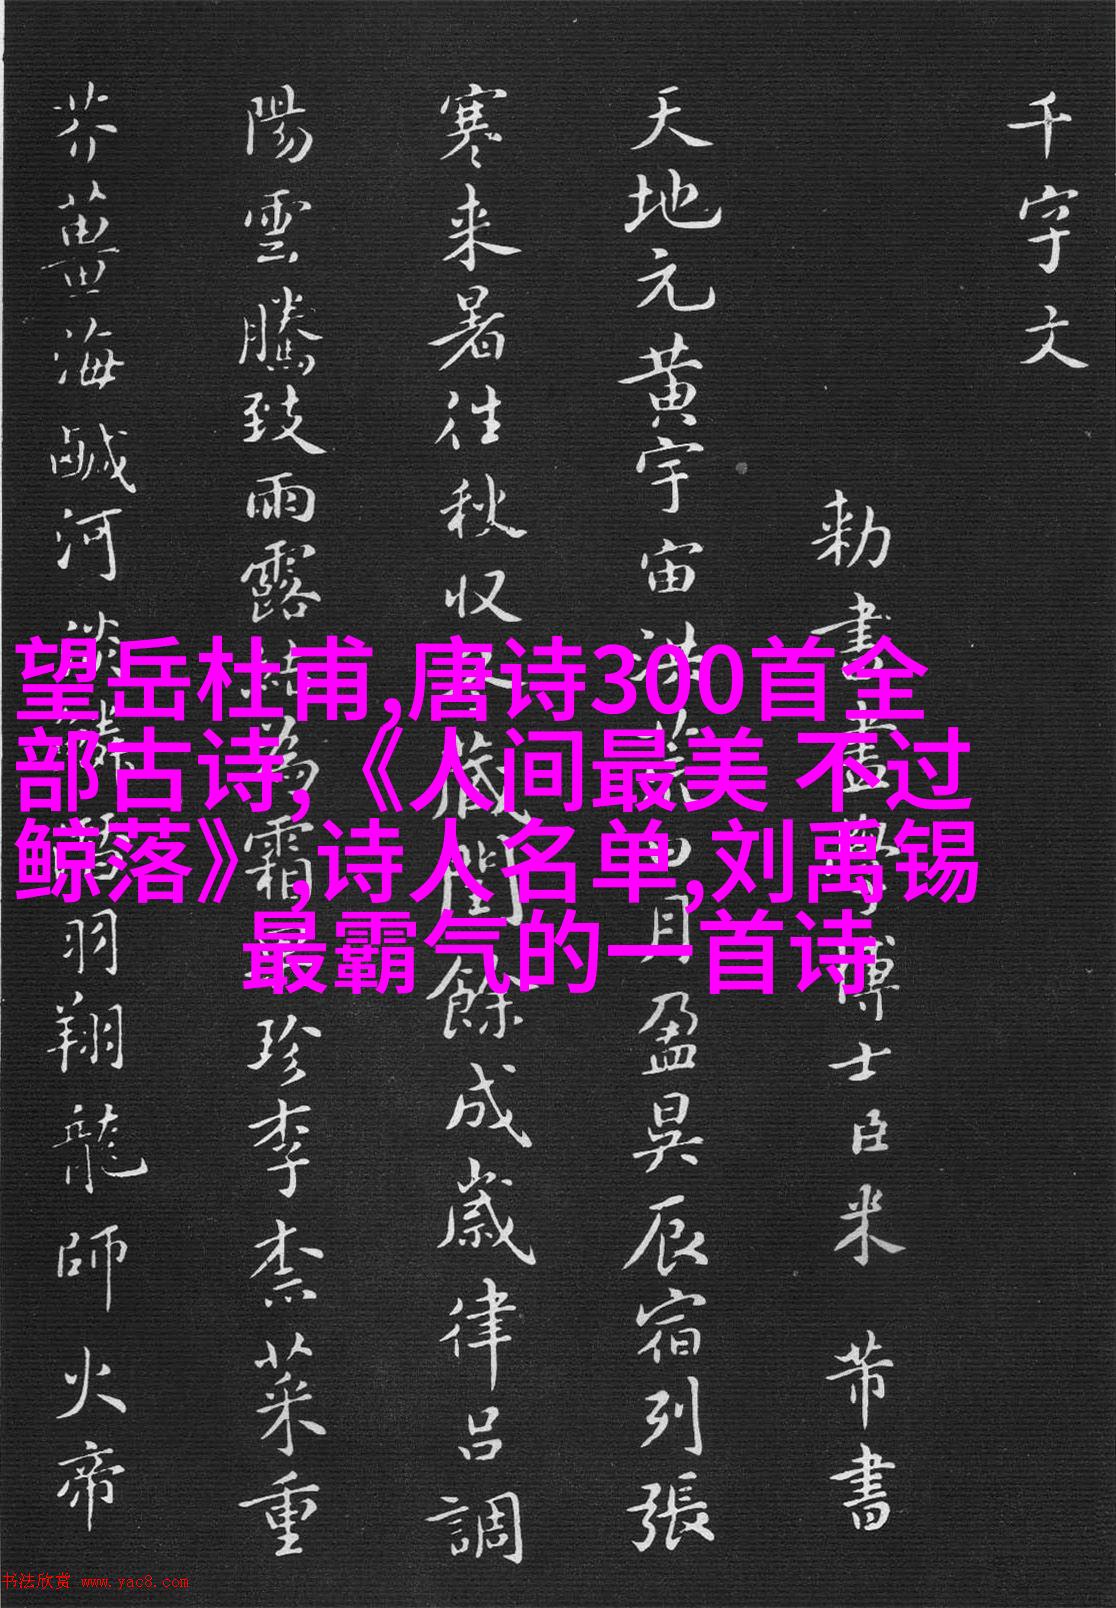 千字文
勅書畫學博士臣米芾書
天地元黄宇宙洪荒日月盈昃辰宿列張
寒来暑往秋収冬蔵閏餘成歲律吕調
陽雲騰致雨露結為霜果珍李柰菜重
芥薑海鹹河淡鱗潛羽翔龍師火帝
望岳杜甫,唐诗300首全
部古诗,《人间最美 不过
鲸落》,诗人名单,刘禹锡
最霸气的一首诗
书法欣赏 www.yac8.com